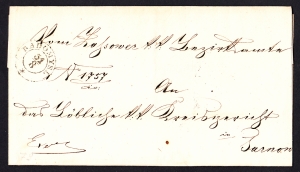 RADOMYSL
Vom Zassower kk Bezirksamte
N 1757
An
das Löbliche kk Kreisgericht
in
Tarnow